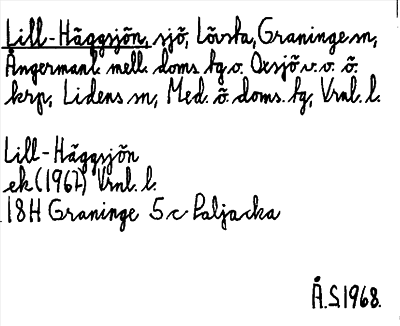 Lill-Häggsjön, sjö, Lövsta, Graninge sn,
Ångermanl. mell. doms. tg o. Oxsjö v.v. ö.
krp, Lidens sn, Med. ö. doms. tg, Vrnl. l.
Lill-Häggsjön
ek (1967) Vrnl. l.
18H Graninge 5c Paljacka
Å.S. 1968.